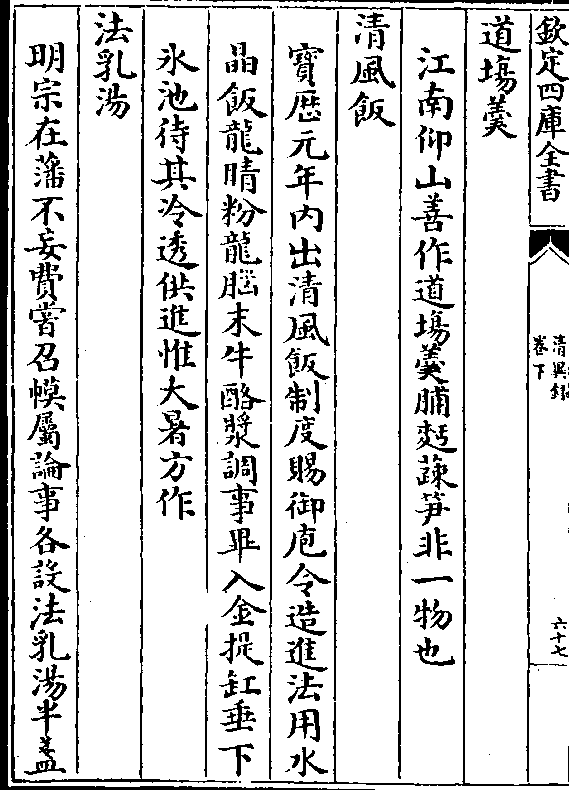 欽定四庫全書
清異録
卷下
六十七
道塲羮
江南仰山善作道塲羮脯麫蔬笋非一物也
清風飯
寳厯元年内出清風飯制度賜御庖令造進法用水
晶飯龍睛粉龍腦末牛酪漿調事畢入金提缸垂下
氷池待其冷透供進惟大暑方作
法乳湯
明宗在藩不妄費嘗召幙屬論事各設法乳湯半盞